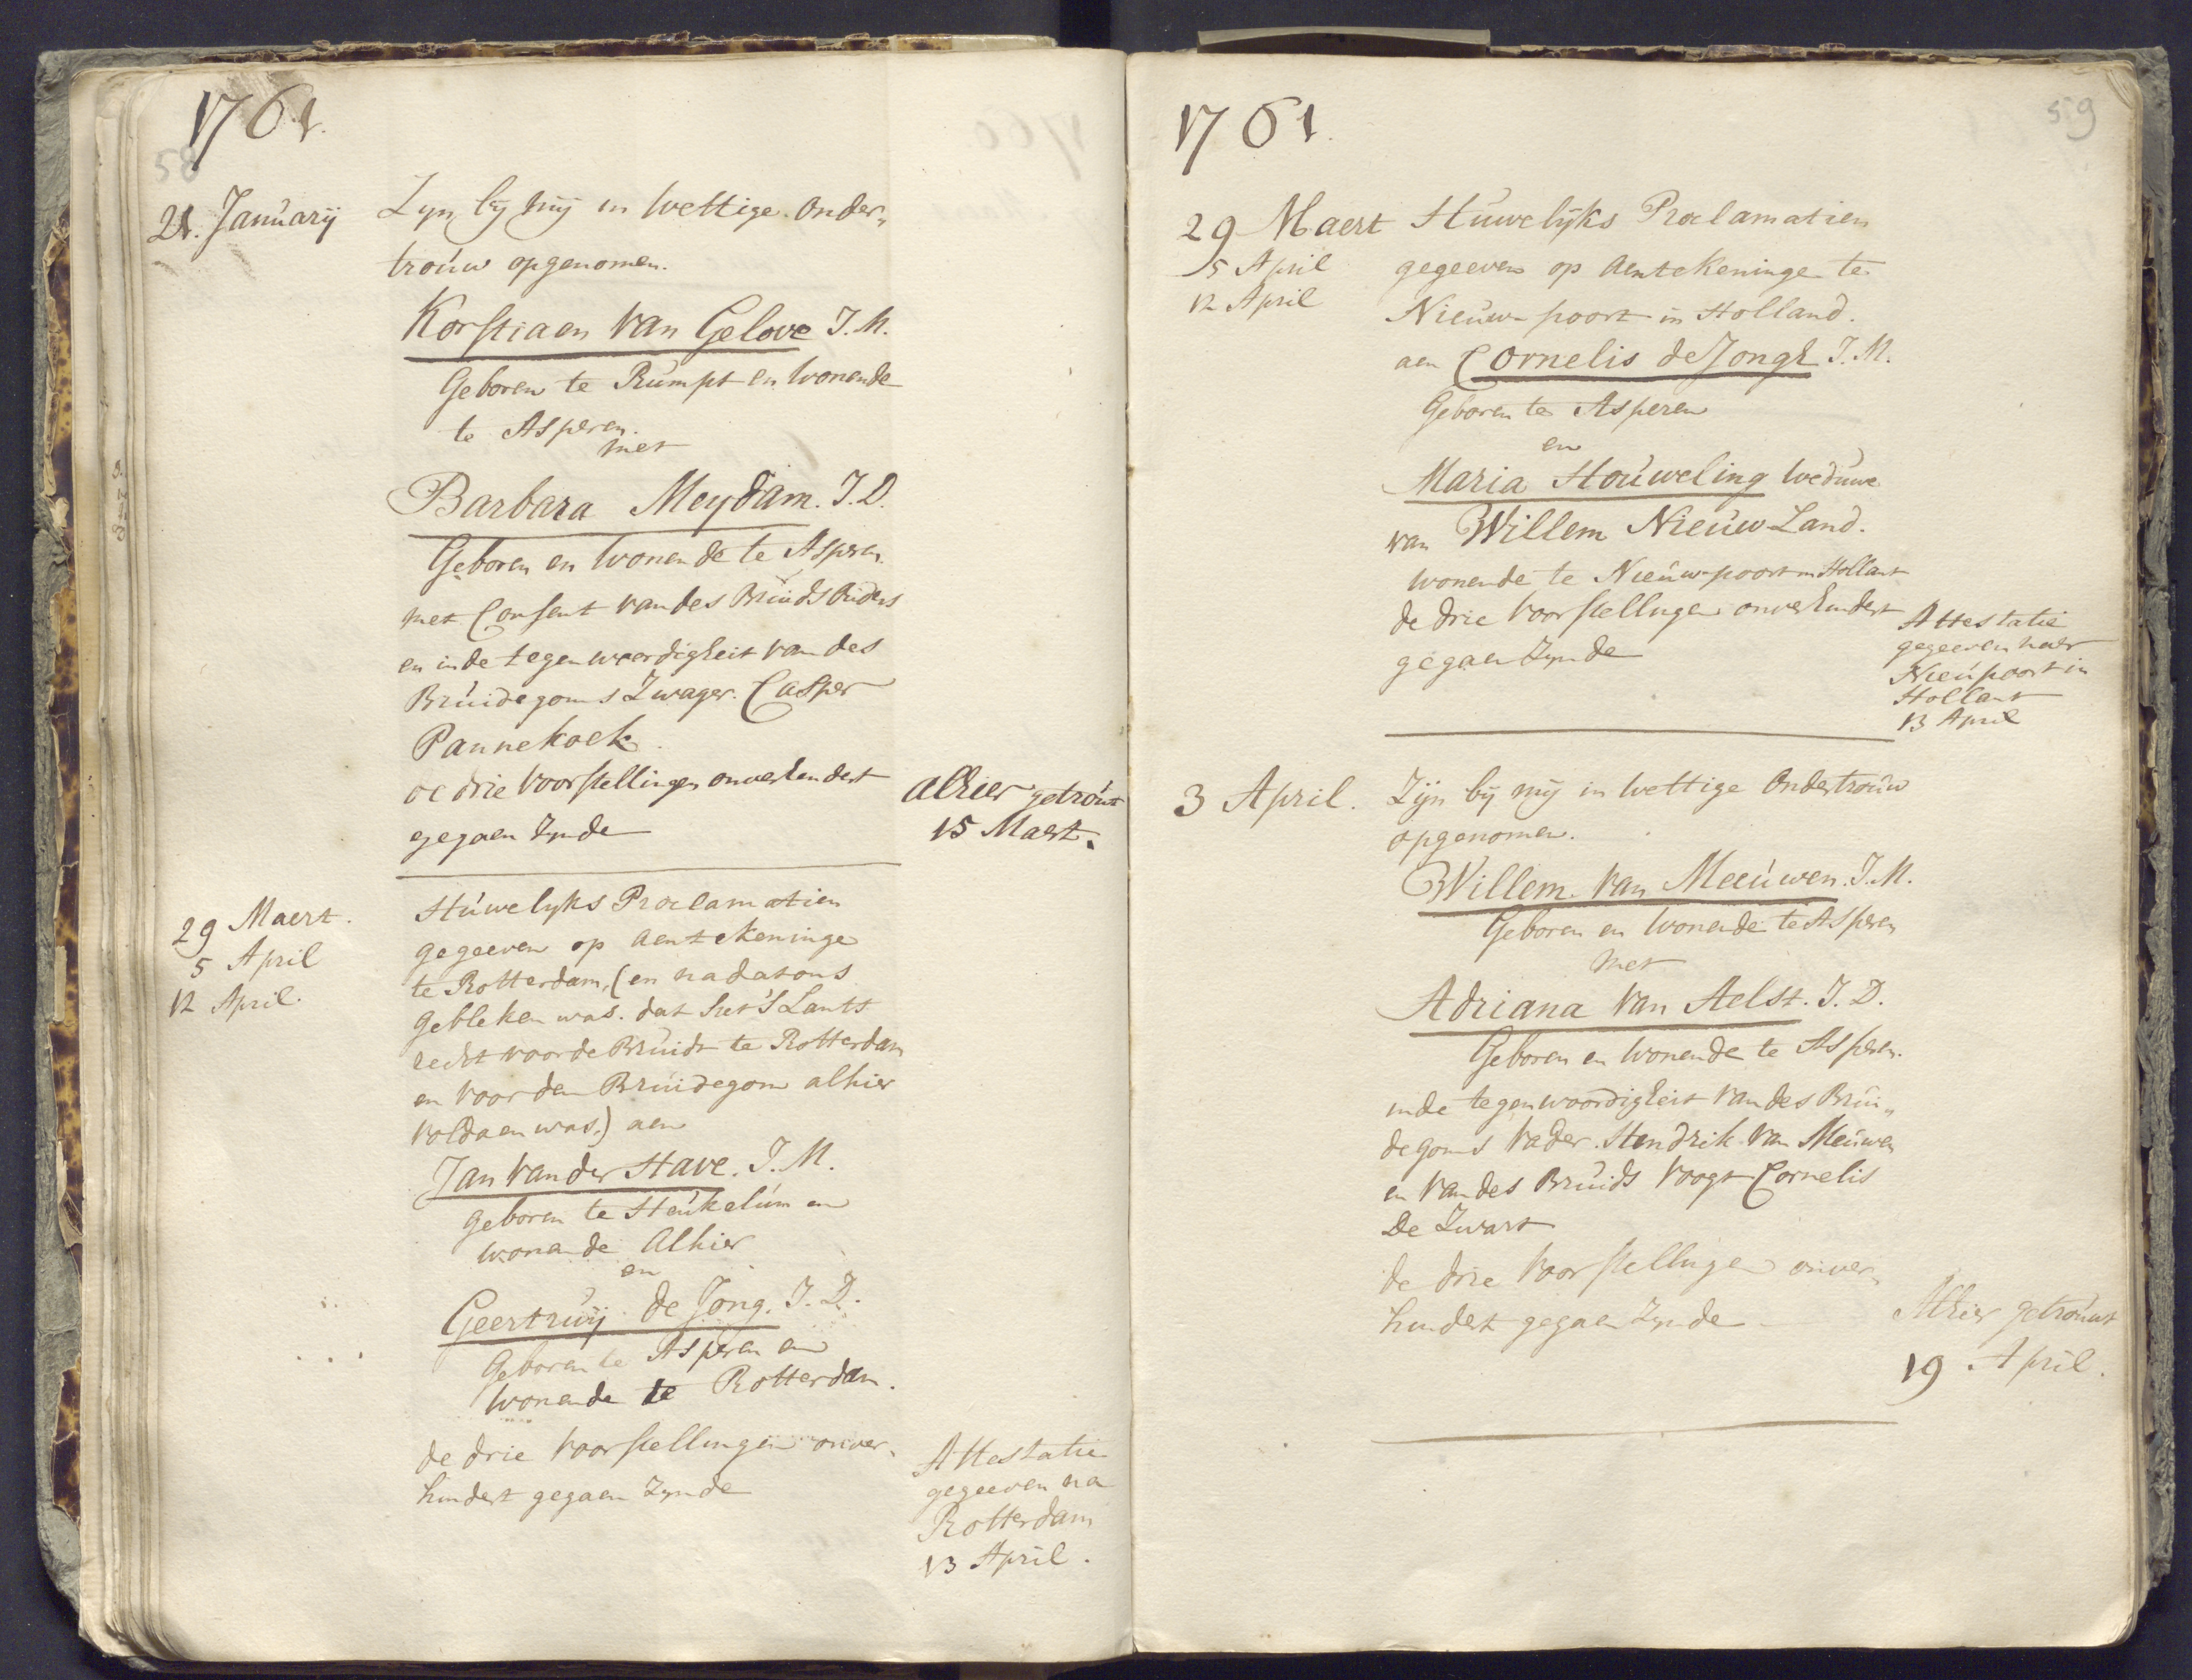 1761.
58
21. Januarij
Zyn bij mij in Wettige onder„
trouw opgenomen.
Korstiaen van Gelove J. M.
Geboren te Rumpt en wonende
te Asperen.
met
Barbara Meydam. J. D.
Geboren en wonende te Asperen.
met Consent van des Bruids Ouders
en in de tegenweerdigheit van des
Bruidegoms Zwager. Casper
Pannekoek.
de drie voorstellingen onverhendert
gegaen Zynde
alhier getrouwt
15 Maert.
29 Maert.
5 April
12 April.
Huwelyks Proclamatien
gegeeven op aentekeninge
te Rotterdam, (en na dat ons
gebleken was. dat het 's Lants
recht voor de Bruidt te Rotterdam
en voor den Bruidegom alhier
voldaen was.) aen
Jan van der Have. J. M.
geboren te Heukelum en
wonende Alhier
en
Geertruij de Jong. J. D.
Geboren te Asperen en
wonende te Rotterdam.
de drie voorstellingen onver„
hindert gegaen Zynde
Attestatie
gegeeven na
Rotterdam
13 April.
1761.
59
29 Maert
5 April
12 April
Huwelijks Proclamatien
gegeeven op Aentekeninge te
Nieuw-poort in Holland.
aen Cornelis de Jongh J. M.
Geboren te Asperen
en
Maria Houweling weduwe
van Willem Nieuw-Land.
wonende te Nieuw-poort in Hollant
de drie voorstellingen onverhindert
gegaen Zynde
Attestatie
gegeeven naer
Nieupoort in
Hollant
13 April
3 April.
Zijn bij mij in wettige Ondertrouw
opgenomen.
Willem. van Meeuwen. J. M.
Geboren en wonende te Asperen
met
Adriana van Aelst. J. D.
Geboren en wonende te Asperen.
in de tegenwoordigheit van des Brui„
degoms vader. Hendrik van Meuwen
en van des Bruids voogt Cornelis
De Zwart
de drie voorstellingen onver„
hindert gegaen Zynde
Alhier getrouwt
19 April.